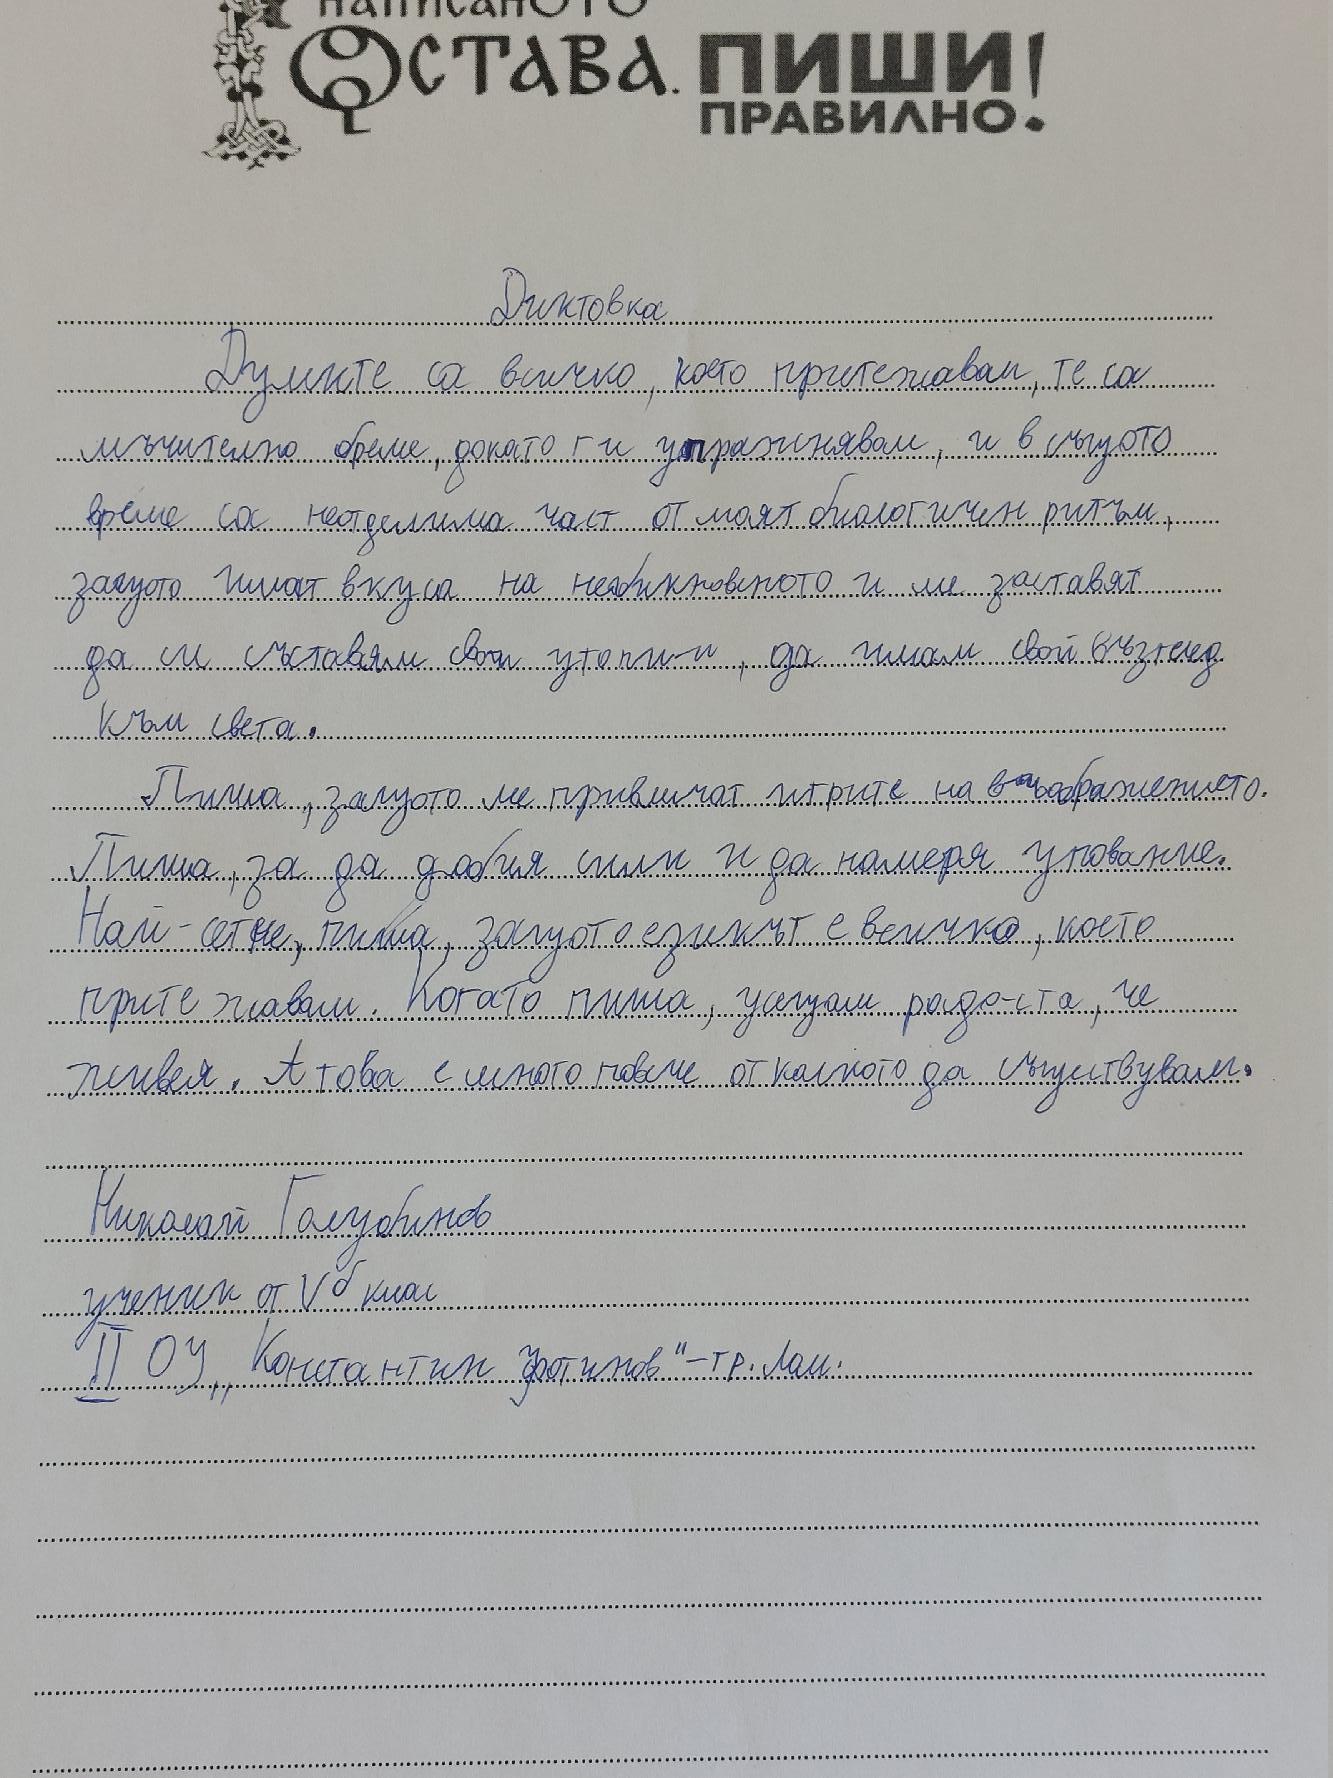 написаното
Остава. ПИШИ
ПРАВИЛНО!
Диктовка
Думите са всичко, което притежавам, те са
мъчително бреме, докато ги упражнявам, и в същото
време са неотделима част от моят биологичен ритъм,
защото имат вкуса на необикновеното и ме заставят
да си съставям свои утопии, да имам свой възглед
към света.
Пиша, защото ме привличат игрите на въображението.
Пиша, за да добия сили и да намеря упование.
Най-сетне, пиша, защото езикът е всичко, което
притежавам. Когато пиша, усещам радостта, че
живея. А това е много повече от колкото да съществувам.
Николай Голубинов
ученик от V б клас
II ОУ „Константин Фотинов" - гр.